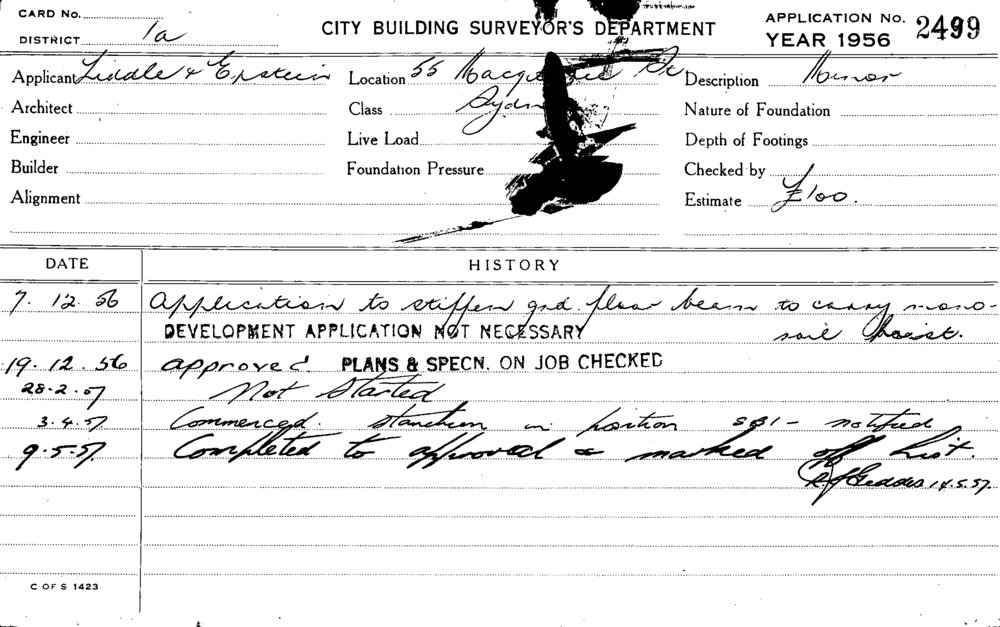 CARD No.
DISTRICT 1a
CITY BUILDING SURVEYOR'S DEPARTMENT
APPLICATION No. 2499
YEAR 1956
Applicant Liddle & Epstein
Location 55 St
Description Minor
Architect
Class
Nature of Foundation
Engineer
Live Load
Depth of Footings
Builder
Foundation Pressure
Checked by
Alignment
Estimate £100.
DATE HISTORY
7. 12. 56 Application to stiffen gnd. floor beam to carry mono-
DEVELOPMENT APPLICATION NOT NECESSARY
rail hoist.
19. 12. 56 approved PLANS & SPECN. ON JOB CHECKED
28.2.57 Not Started
3.4.57 Commenced. stancheon in position notified
9.5.57. Completed to approval & marked off List.
14.5.57.
C OF S 1423